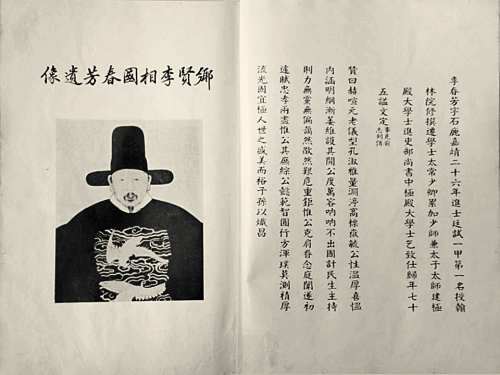 李春芳字石鹿嘉靖二十六年進士廷試一甲第一名授翰
林院修撰遷學士太常少卿累加少師兼太子太師建極
殿大學士進吏部尚書中極殿大學士乞致仕歸年七十
五謚文定事見前志列傳
贊曰赫喧元老儀型孔淑雅量淵渟高標
公性溫厚喜慍
內涵明綱漸姜維護其間公度萬容吶吶不出國計民生主持
則力無黨無偏藹然歘然艱危重鉅惟公克肩眷念庭闈遂初
遽賦忠孝兩盡惟公其庶綜公懿範智圓行方渾璞莫測積厚
流光因宜極人世之盛美而裕子孫以熾昌
鄉賢李相國春芳遺像